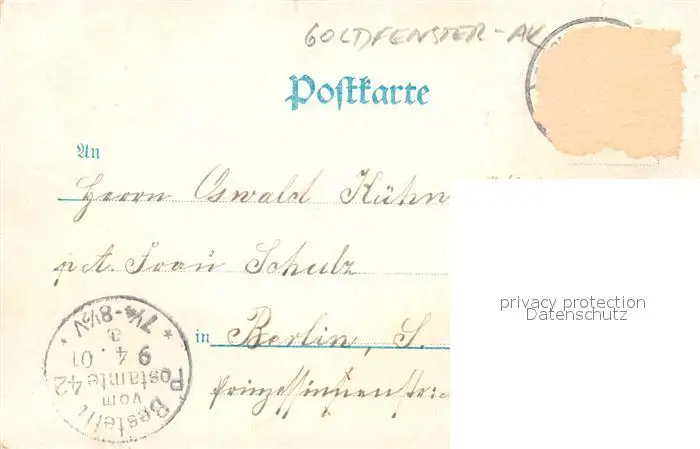 GOLDFENSTER-AK
Postkarte
An
Herrn Oswald Kühn
p. A. Frau Schulz
in Berlin, S.
Prinzessinnenstr
privacy protection
Datenschutz
Bestellt
vom
Postamte 42
9 4. 01
7¼-8½V